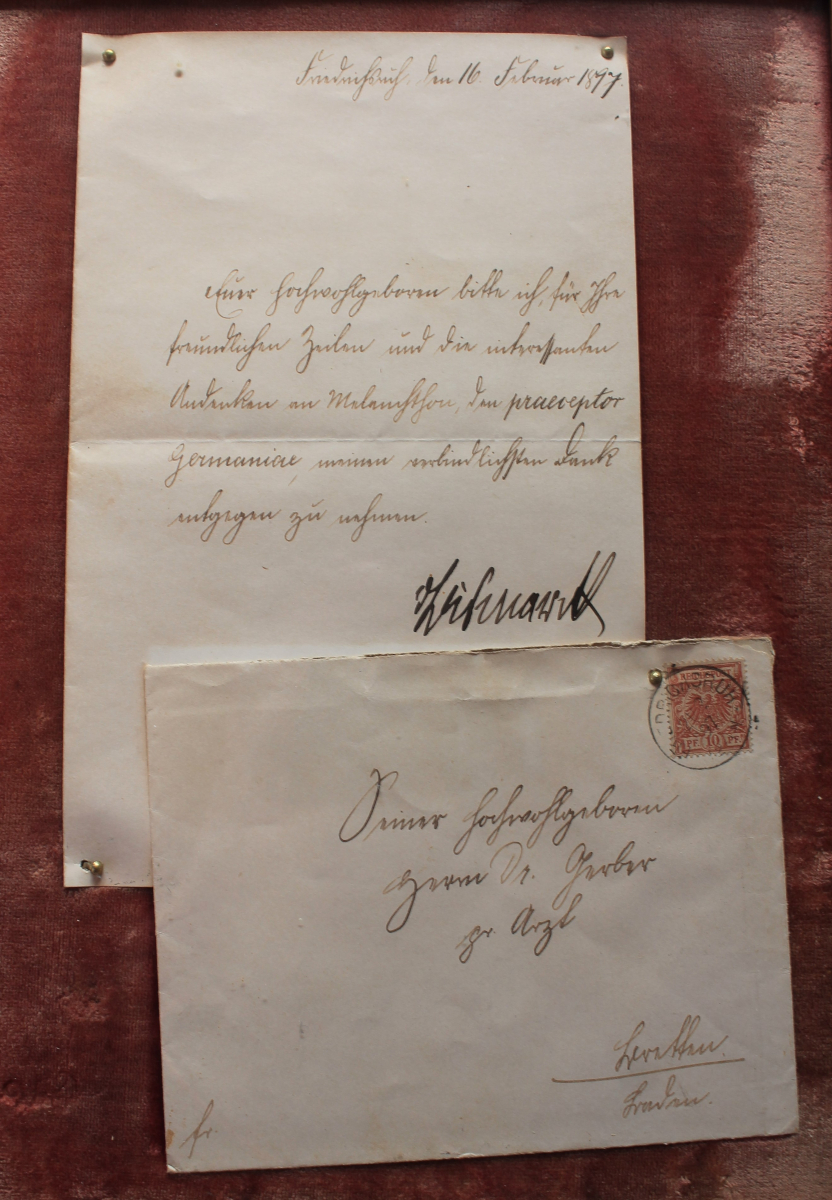 Friedrichsruh, den 16. Februar 1897.
Euer Hochwohlgeboren bitte ich, für Ihre
freundlichen Zeilen und die interessanten
Andenken an Melanchthon, den praeceptor
Germaniae, meinen verbindlichsten Dank
entgegen zu nehmen.
v Bismarck
REICHSPOST
PF 10 PF
Seiner Hochwohlgeboren
Herrn Dr. Gerber
pr Arzt
Bretten.
Baden.
fr.